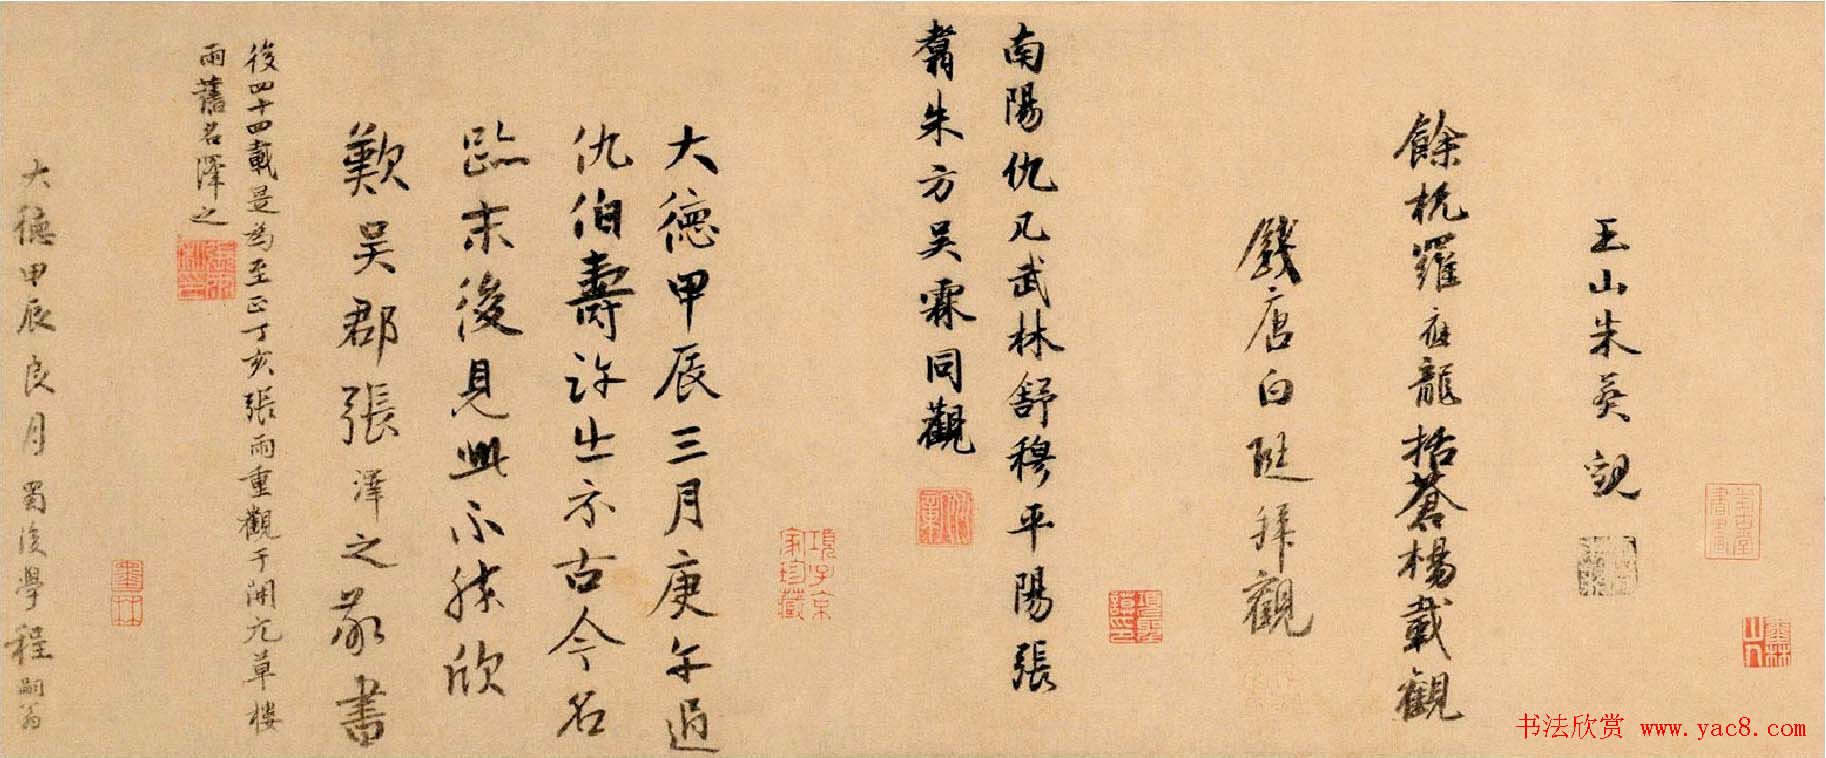 王山朱英觀
餘杭羅志龍括蒼楊載觀
錢唐白珽拜觀
南陽仇几武林舒穆平陽張
翥朱方吳霖同觀
大德甲辰三月庚午過
仇伯壽許出示古今名
跡末後見此不勝欣
歎吳郡張澤之敬書
後四十四載是為至正丁亥張雨重觀于開元草樓
雨舊名澤之
大德甲辰良月蜀後學程嗣翁
項子京
家珍藏
书法欣赏 www.yac8.com